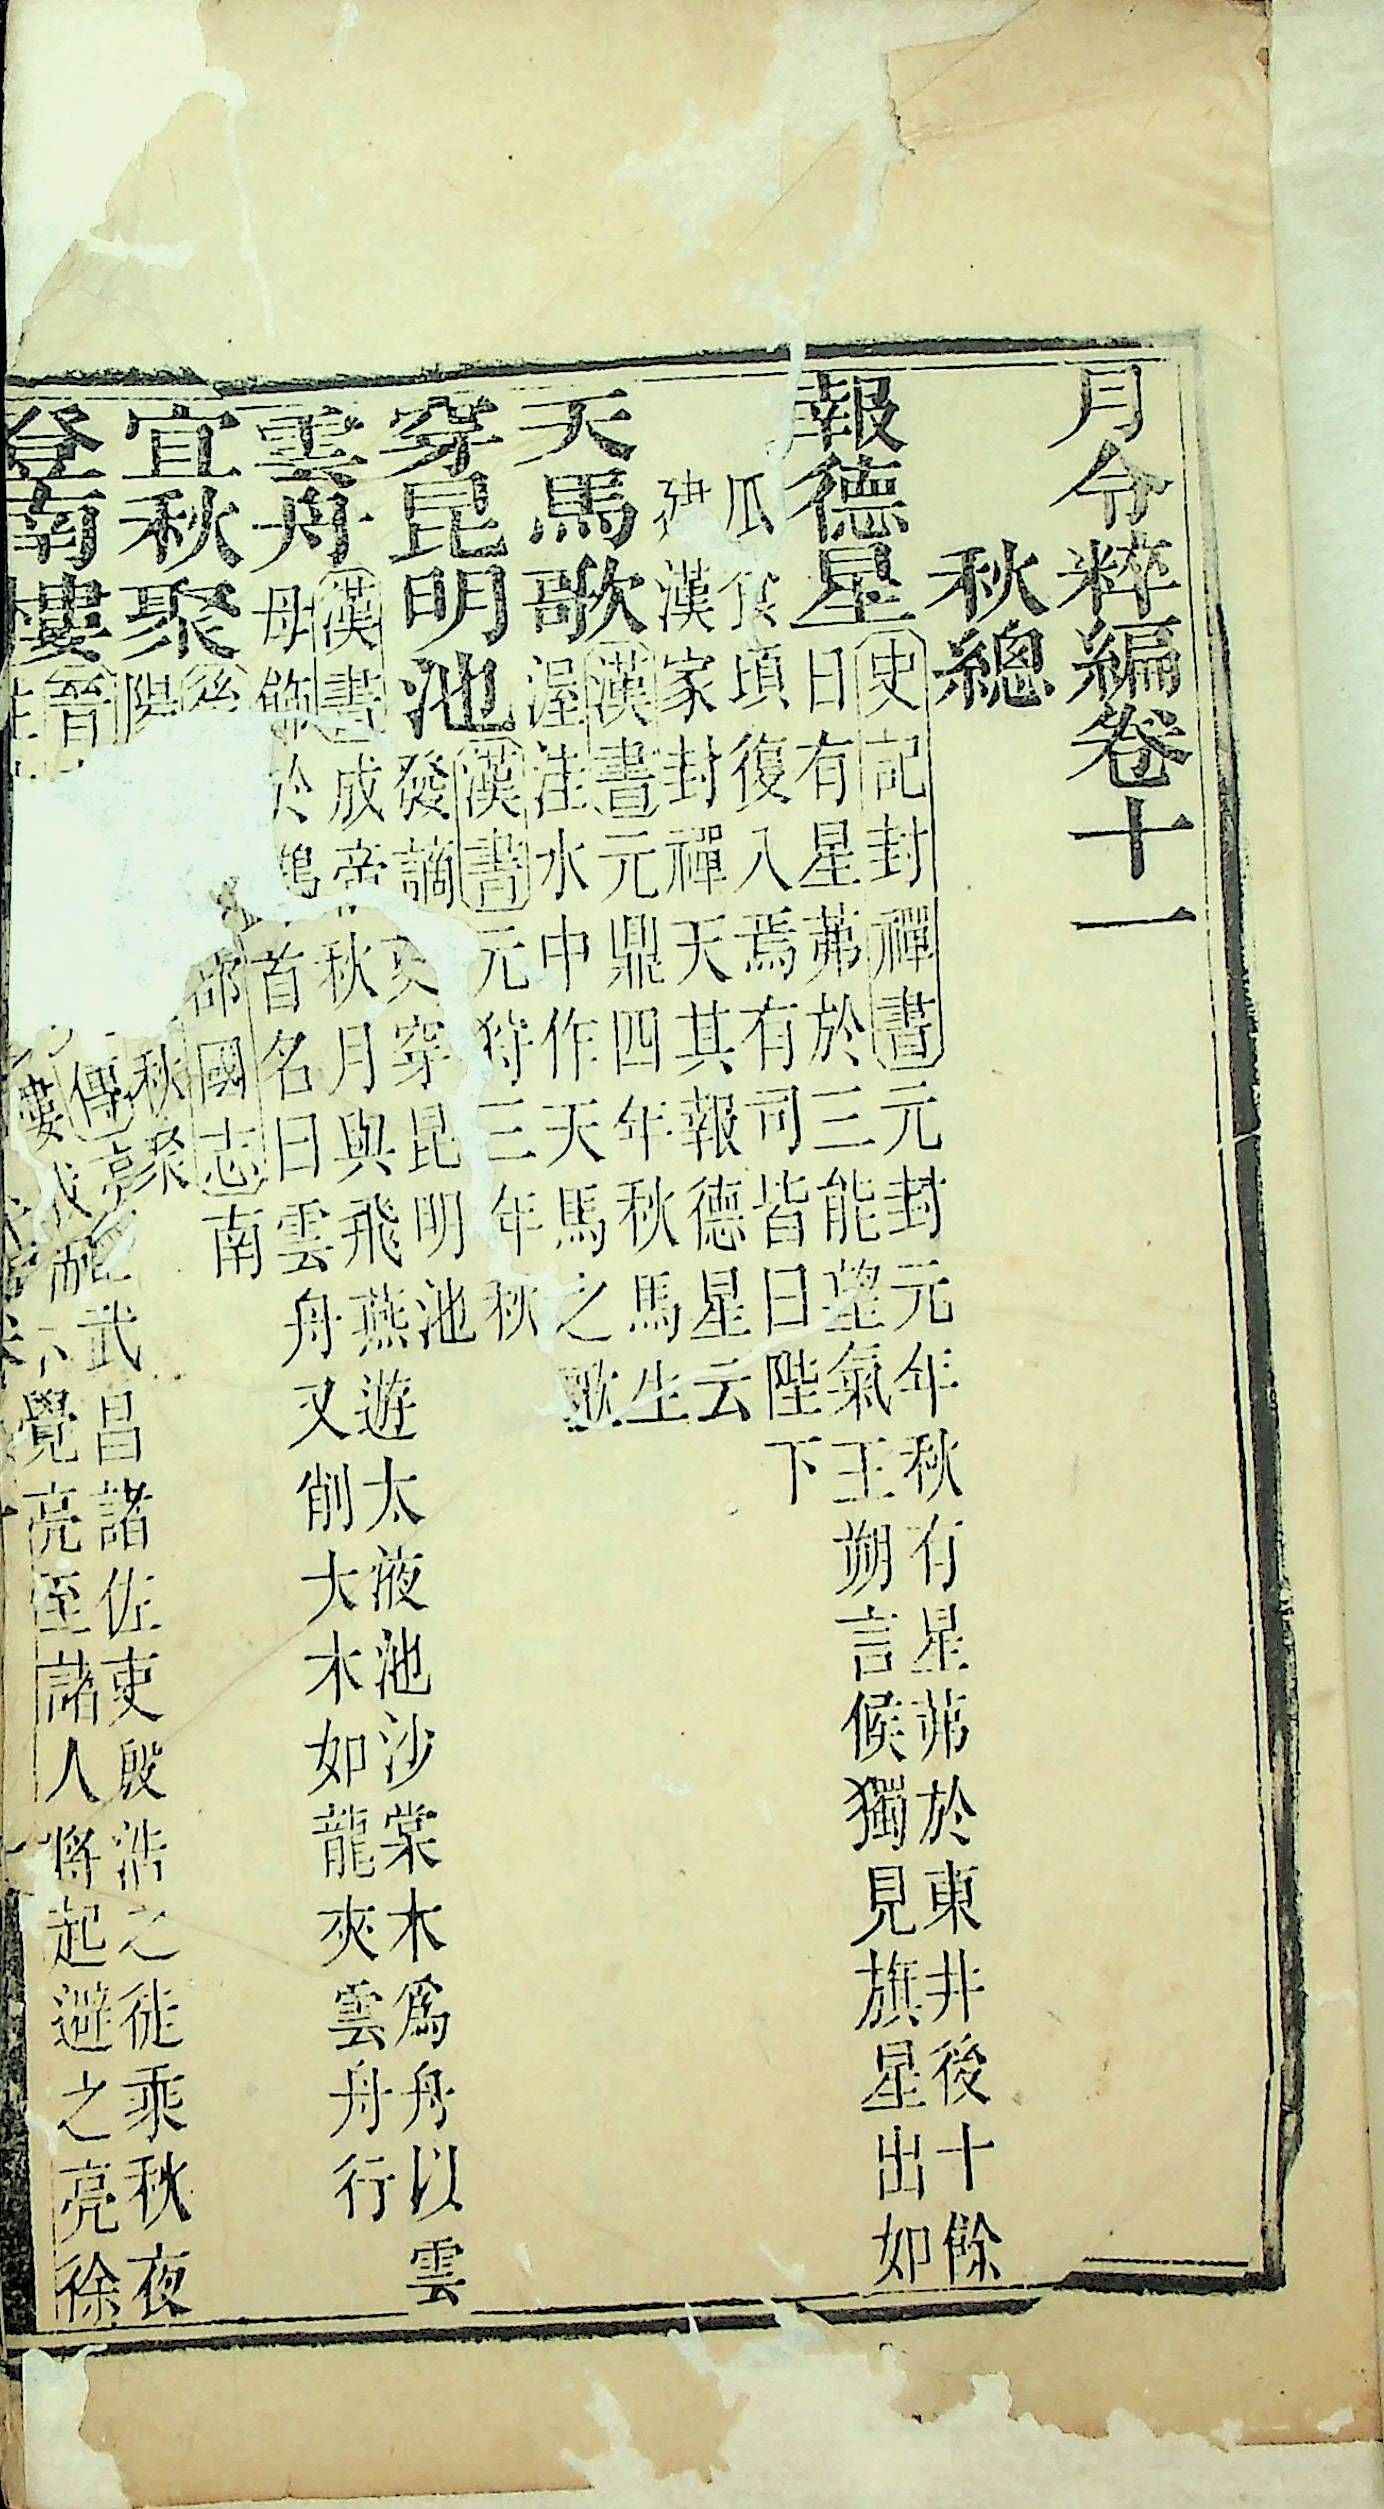 月令粹編卷十一
秋總
報德星
史記封禪書元封元年秋有星茀於東井後十餘
日有星茀於三能望氣王朔言候獨見旗星出如
瓜食頃復入焉有司皆曰陛下
建漢家封禪天其報德星云
天馬歌
漢書元鼎四年秋馬生
渥洼水中作天馬之歌
穿昆明池
漢書元狩三年秋
發謫吏穿昆明池
雲舟
漢書成帝秋月與飛燕遊太液池沙棠木為舟以雲
母飾於鷁首名曰雲舟又削大木如龍夾雲舟行
宜秋聚
後郡國志南
陽秋聚
登南樓
晉傳亮武昌諸佐吏殷浩之徒乘秋夜
樓不覺亮至諸人將起避之亮徐